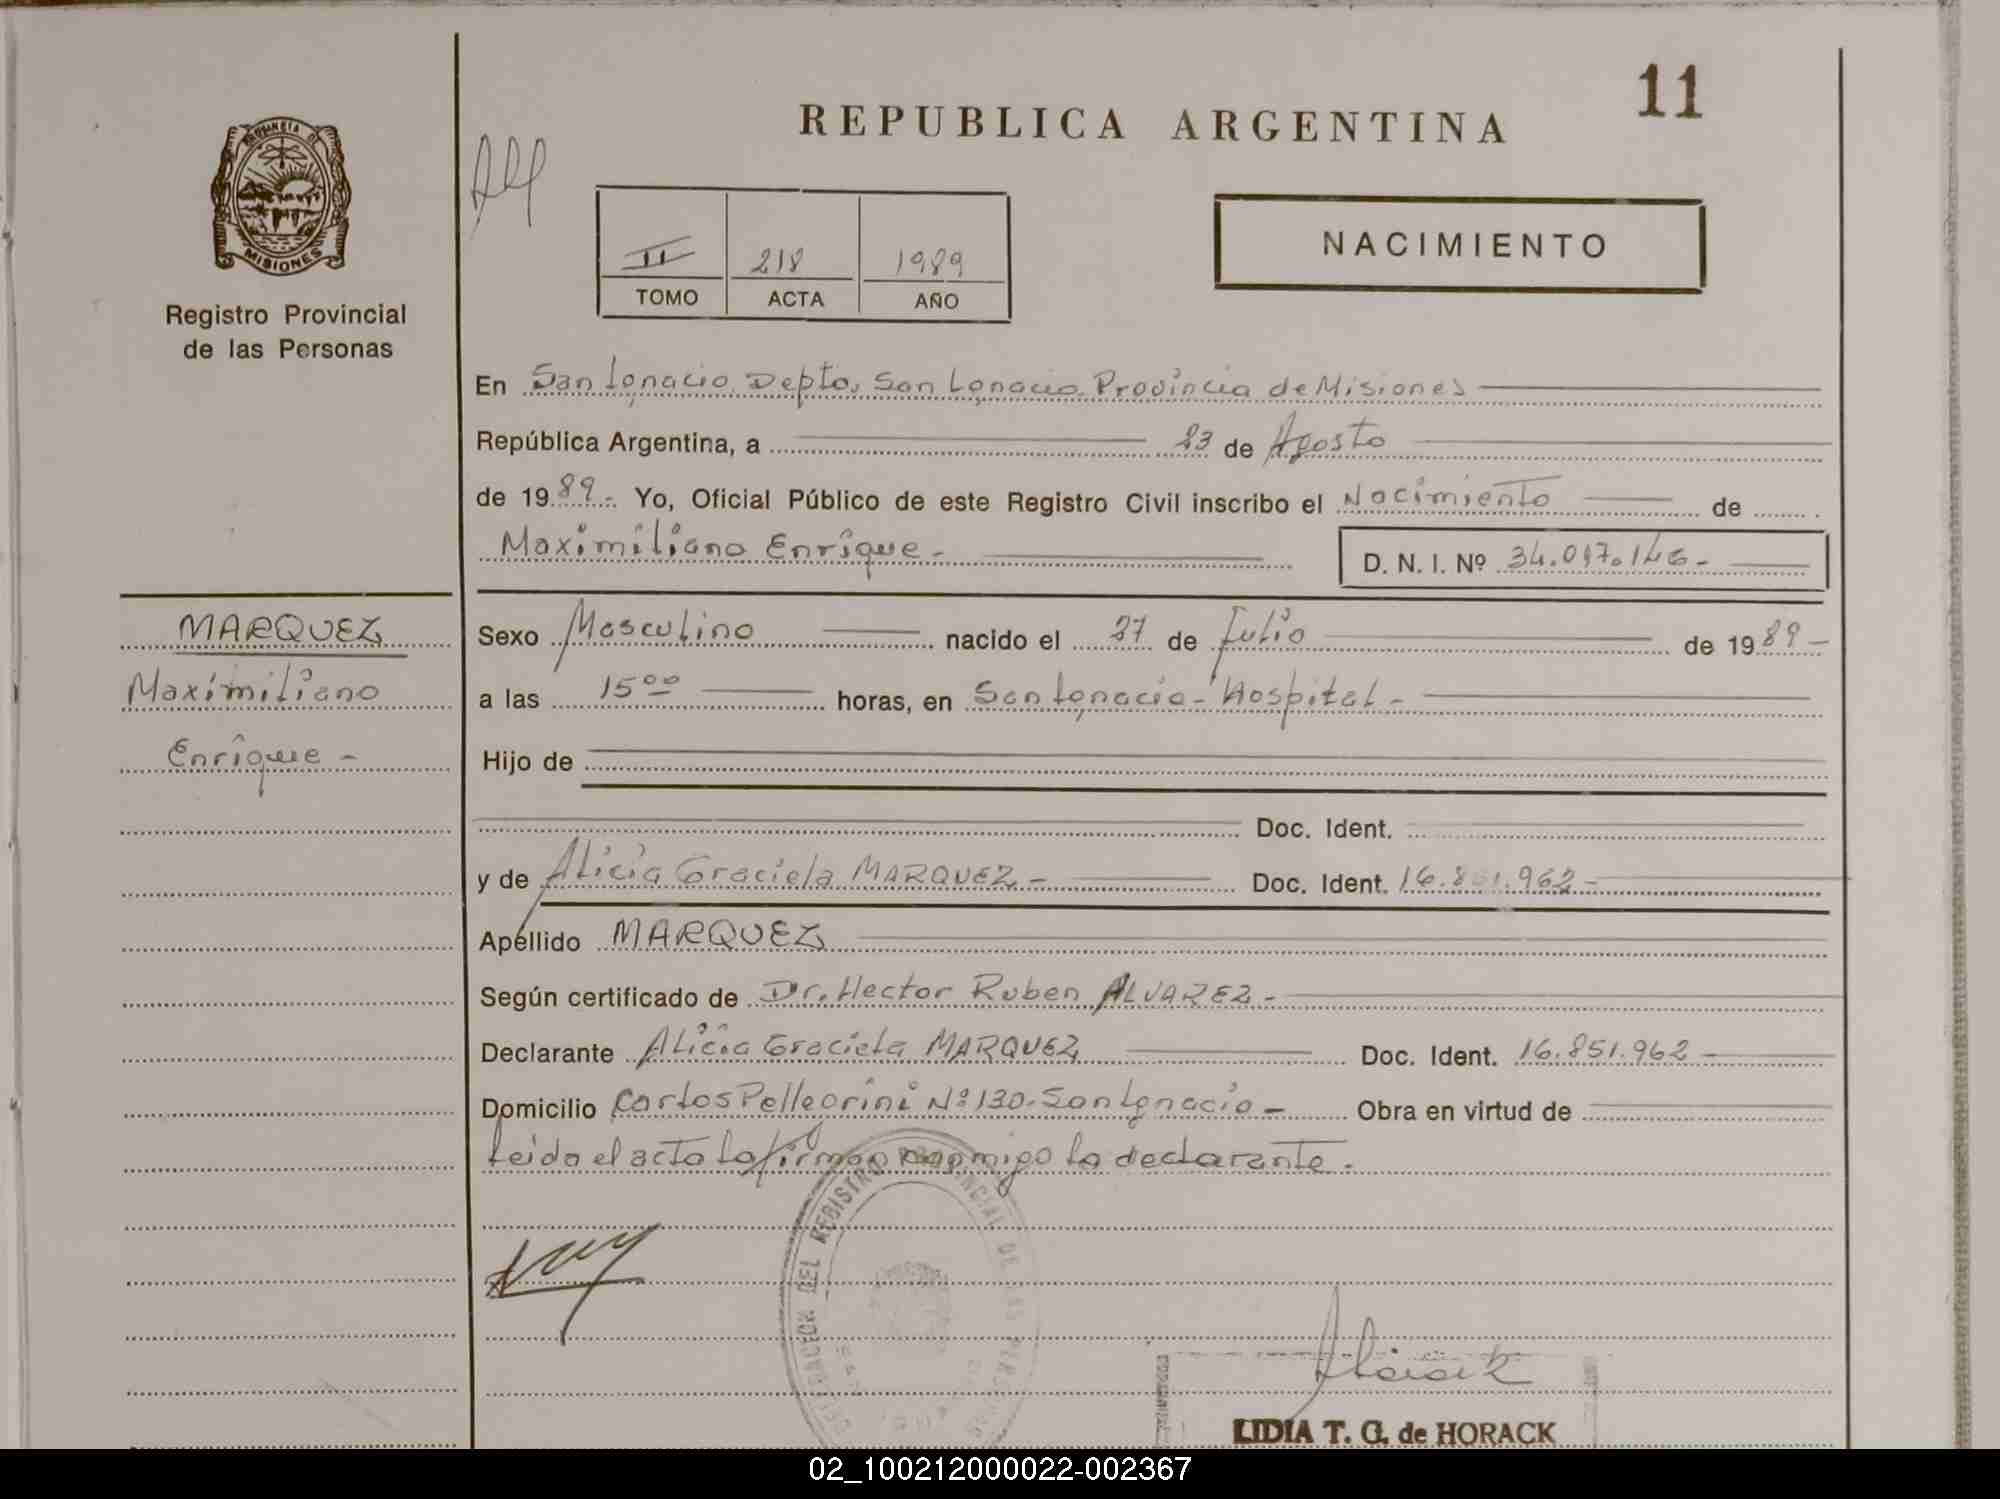 11
REPUBLICA ARGENTINA
PROVINCIA DE
MISIONES
Registro Provincial
de las Personas
II 218 1989
TOMO ACTA AÑO
NACIMIENTO
En San Ignacio, Depto. San Ignacio. Provincia de Misiones
República Argentina, a 23 de Agosto
de 1989.- Yo, Oficial Público de este Registro Civil inscribo el Nacimiento de
Maximiliano Enrique.- D. N. I. Nº
MARQUEZ
Maximiliano
Enrique -
Sexo Masculino nacido el 27 de Julio de 1989 -
a las 15⁰⁰ horas, en San Ignacio - Hospital -
Hijo de
Doc. Ident.
y de Alicia Graciela MARQUEZ - Doc. Ident. 16.851.962 -
Apellido MARQUEZ
Según certificado de Dr. Hector Ruben ALVAREZ -
Declarante Alicia Graciela MARQUEZ Doc. Ident. 16.851.962 -
Domicilio Carlos Pellegrini Nº 130. San Ignacio - Obra en virtud de
Leida el acta la firman conmigo la declarante.
DELEGACION DEL REGISTRO PROVINCIAL DE LAS PERSONAS
LIDIA T. G. de HORACK
02_100212000022-002367